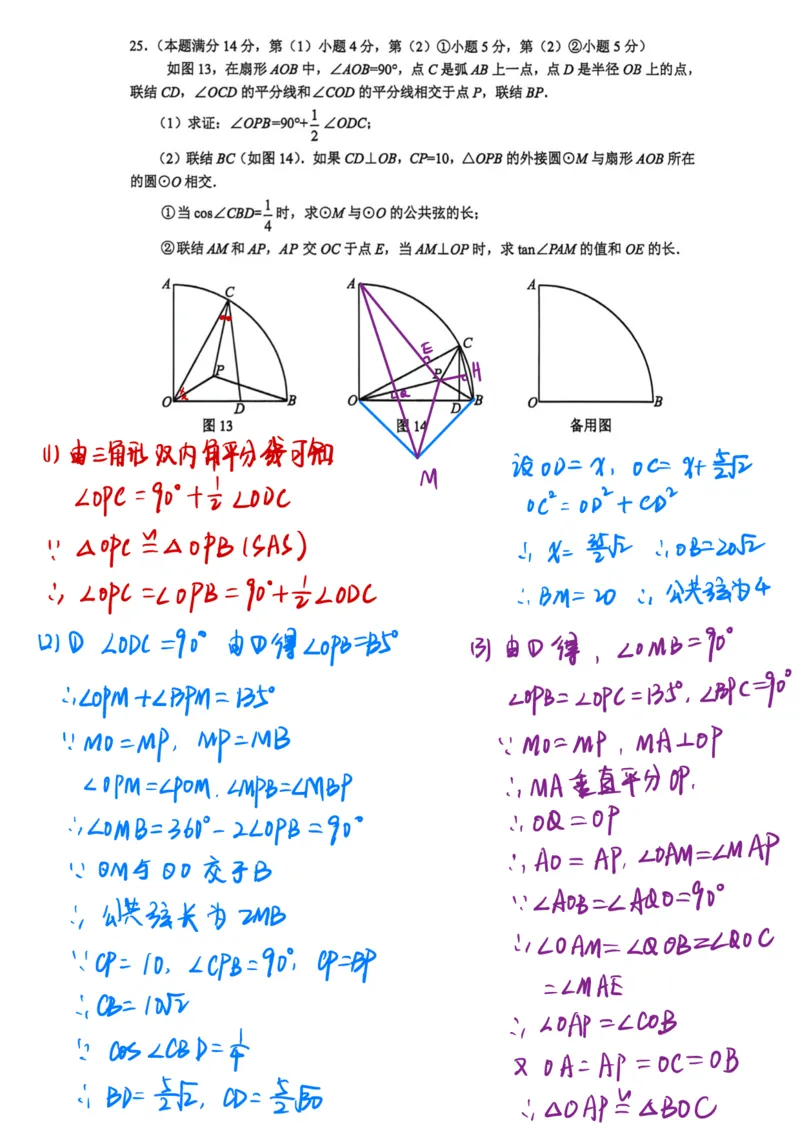 25.（本题满分14分，第（1）小题4分，第（2）①小题5分，第（2）②小题5分）
如图13，在扇形AOB中，∠AOB=90°，点C是弧AB上一点，点D是半径OB上的点，
联结CD，∠OCD的平分线和∠COD的平分线相交于点P，联结BP．
（1）求证：∠OPB=90°+1/2∠ODC；
（2）联结BC（如图14）．如果CD⊥OB，CP=10，△OPB的外接圆⊙M与扇形AOB所在
的圆⊙O相交．
①当cos∠CBD=1/4时，求⊙M与⊙O的公共弦的长；
②联结AM和AP，AP交OC于点E，当AM⊥OP时，求tan∠PAM的值和OE的长．
A C P O D B
图13
A C E P H Q O D B M
图14
A O B
备用图
(1) 由三角形双内角平分线可知
∠OPC=90°+1/2∠ODC
∵ △OPC≌△OPB(SAS)
∴ ∠OPC=∠OPB=90°+1/2∠ODC
(2)① ∠ODC=90° 由①得∠OPB=135°
∴∠OPM+∠BPM=135°
∵ MO=MP, MP=MB
∠OPM=∠POM.∠MPB=∠MBP
∴∠OMB=360°-2∠OPB=90°
∵ ⊙M与⊙O交于B
∴ 公共弦长为2MB
∵CP=10, ∠CPB=90°, CP=BP
∴CB=10√2
∵ cos∠CBD=1/4
∴ BD=5/2√2, CD=5/2√30
设OD=x, OC=x+5/2√2
OC²=OD²+CD²
∴ x=35/2√2 ∴OB=20√2
∴BM=20 ∴公共弦为4
(3) 由①得, ∠OMB=90°
∠OPB=∠OPC=135°, ∠BPC=90°
∵ MO=MP, MA⊥OP
∴ MA垂直平分OP.
∴ OQ=OP
∴ AO=AP, ∠OAM=∠MAP
∵∠AOB=∠AQO=90°
∴∠OAM=∠QOB=∠QOC
=∠MAE
∴ ∠OAP=∠COB
又 OA=AP=OC=OB
∴ △OAP≌△BOC